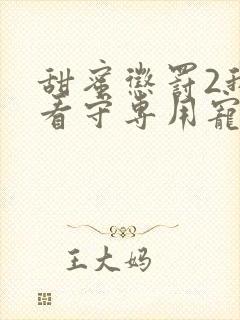 甜蜜懲罰2我
看守専用寵
王大妈